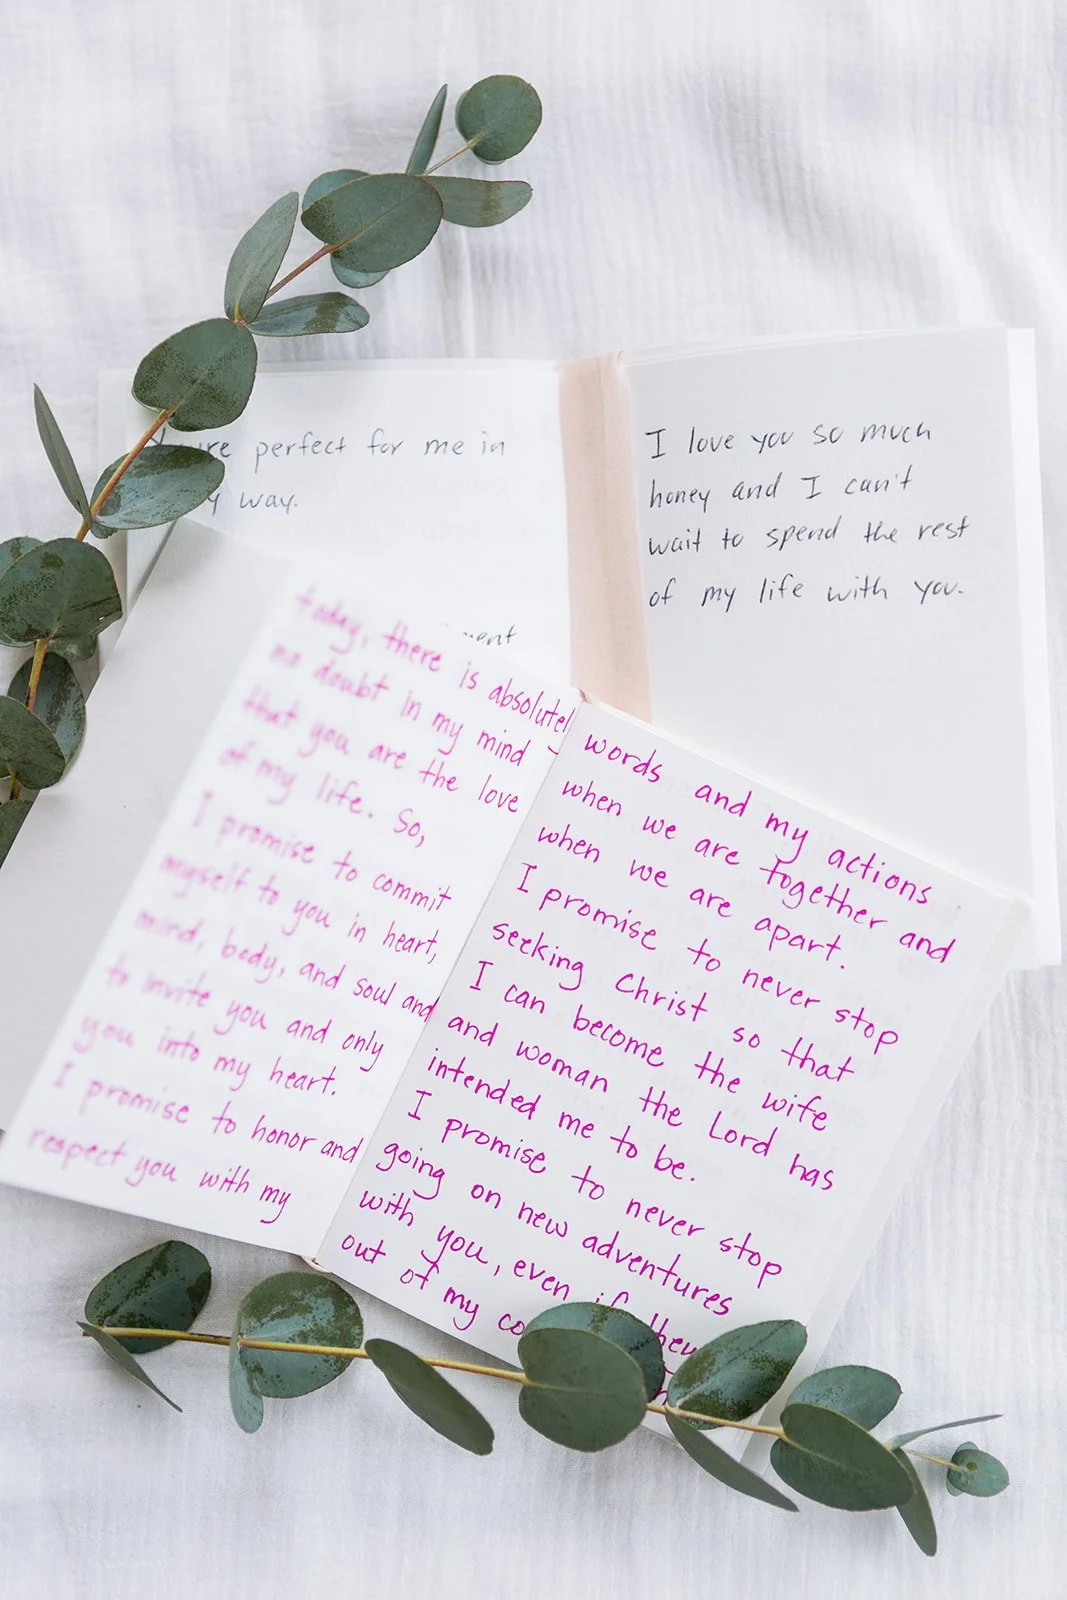 perfect for me in
way.
I love you so much
honey and I can't
wait to spend the rest
of my life with you.
today, there is absolutely
no doubt in my mind
that you are the love
of my life. So,
I promise to commit
myself to you in heart,
mind, body, and soul and
to invite you and only
you into my heart.
I promise to honor and
respect you with my
words and my actions
when we are together and
when we are apart.
I promise to never stop
seeking Christ so that
I can become the wife
and woman the Lord has
intended me to be.
I promise to never stop
going on new adventures
with you, even if they
out of my